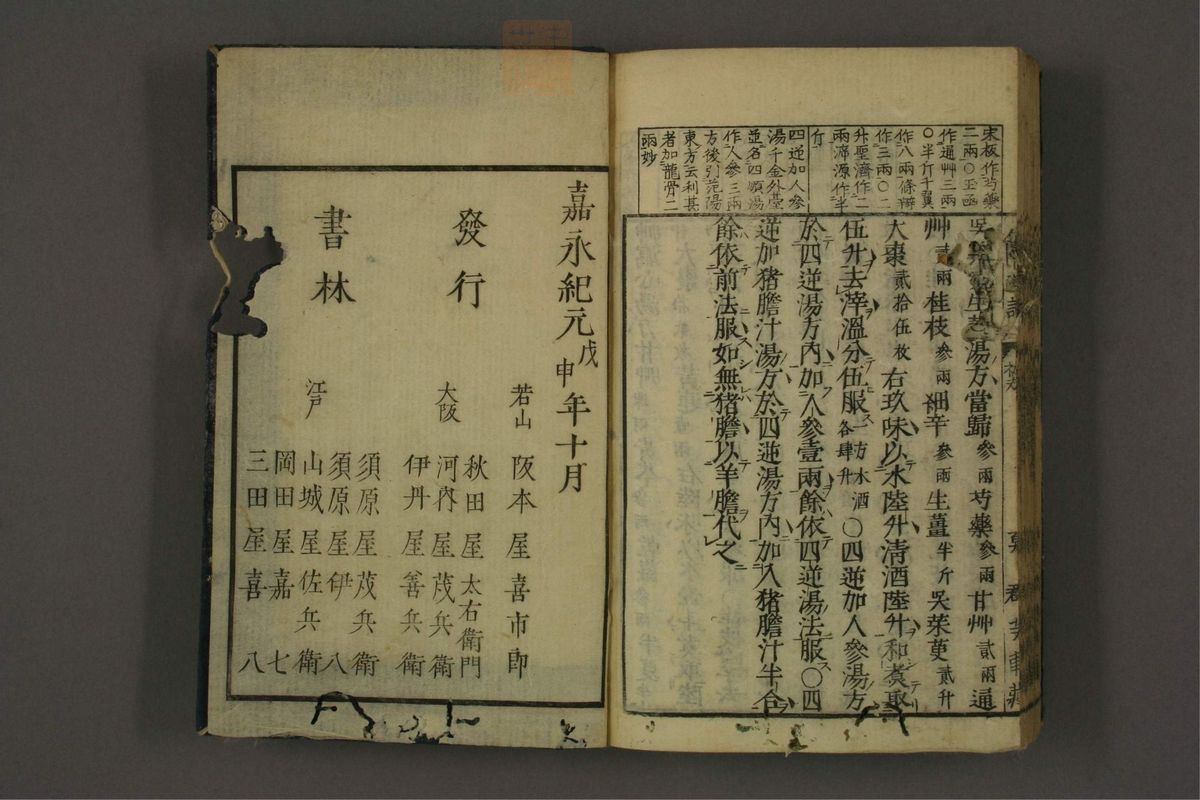 宋板作芍藥
二兩○玉函
作通艸三兩
○半斤千翼
作八兩條辨
作三兩○二
升聖濟作二
兩溯源作半
斤
四逆加人參
湯千金外臺
並名四順湯
作人參三兩
方後引范陽
東方云利甚
者加龍骨二
兩妙
吳茱萸生薑湯方當歸參兩芍藥參兩甘艸貳兩通
艸貳兩桂枝參兩細辛參兩生薑半斤吳茱萸貳升
大棗貳拾伍枚右玖味以水陸升清酒陸升和煑取
伍升去滓溫分伍服一方水酒各肆升○四逆加人參湯方
於四逆湯方內加人參壹兩餘依四逆湯法服○四
逆加猪膽汁湯方於四逆湯方內加入猪膽汁半合
餘依前法服如無猪膽以羊膽代之
嘉永紀元戊申年十月
發行
書林
若山 阪本屋喜市郎
大阪 秋田屋太右衛門
河內屋茂兵衛
伊丹屋善兵衛
江戶 須原屋茂兵衛
須原屋伊八
山城屋佐兵衛
岡田屋嘉七
三田屋喜八